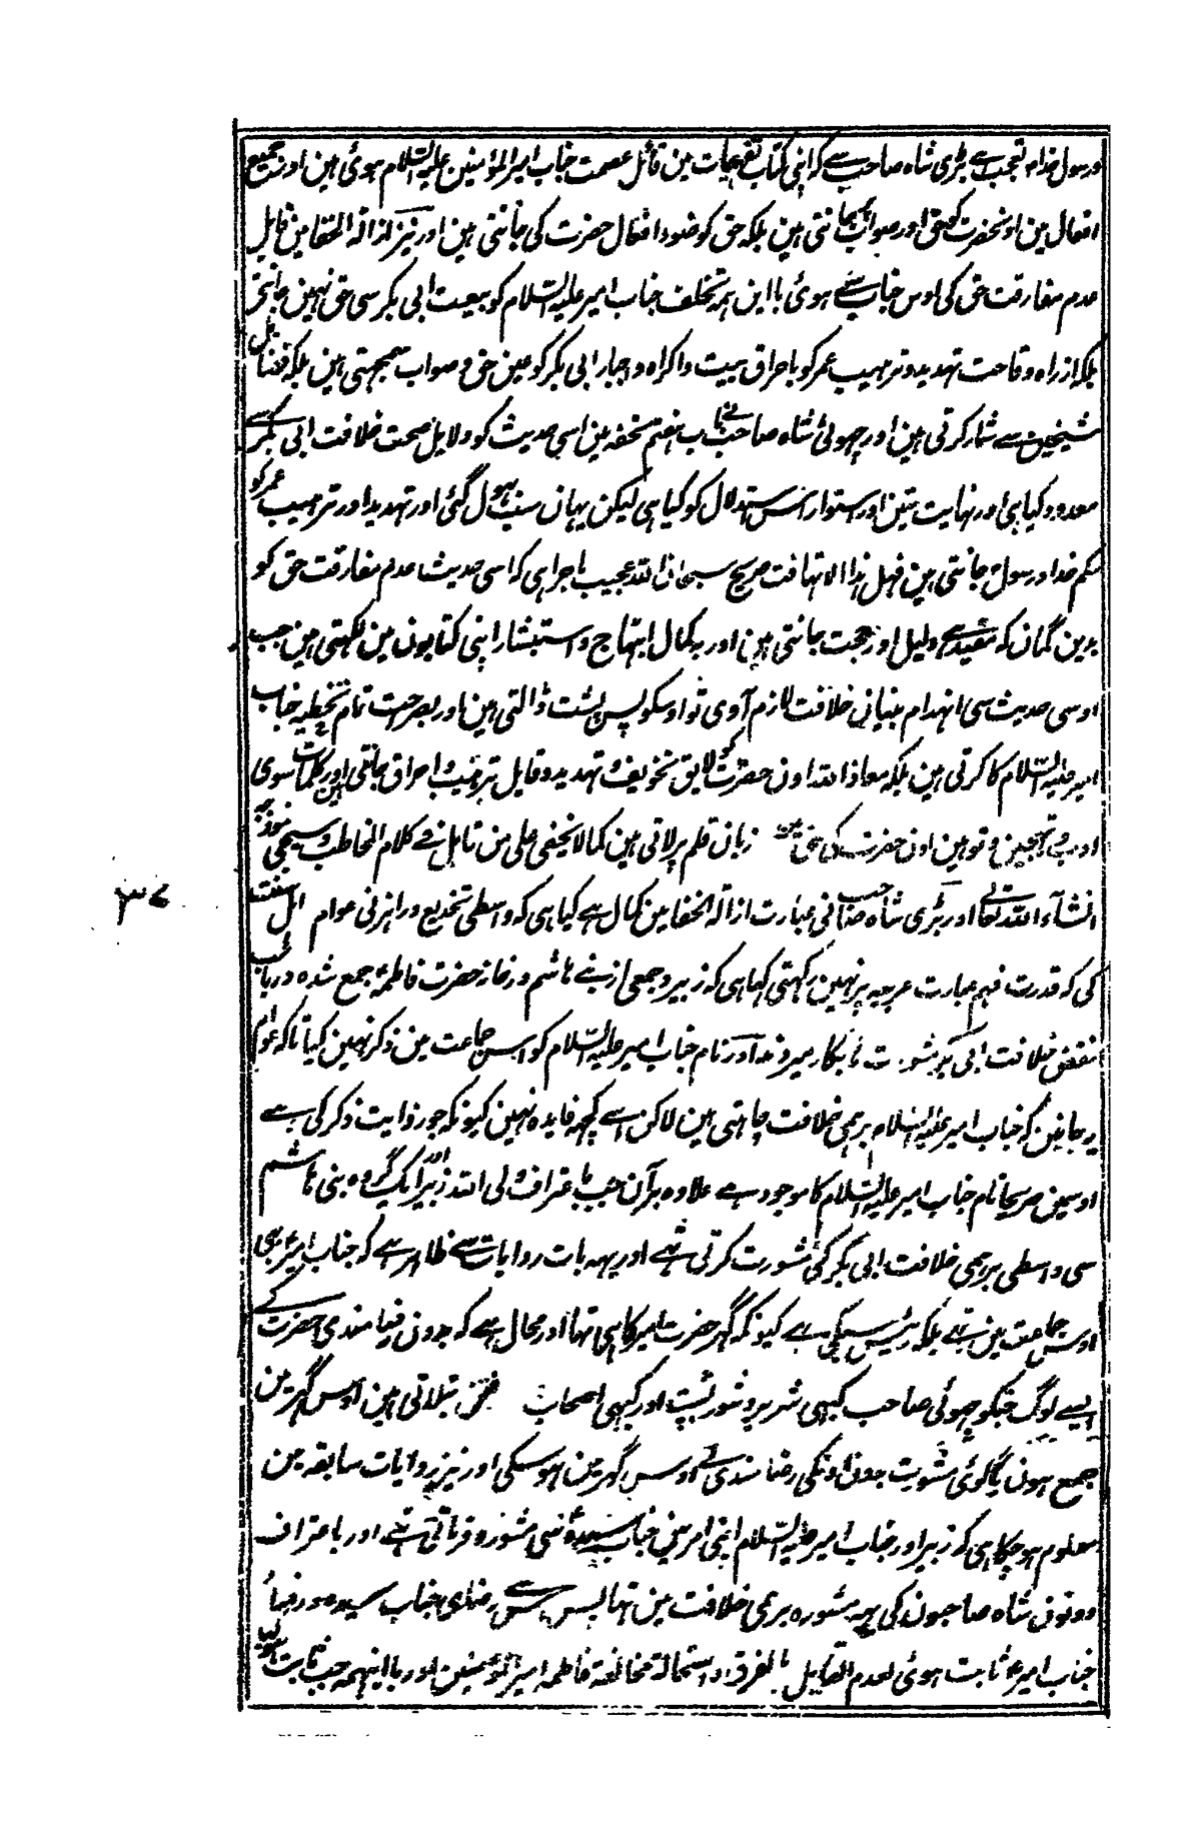 ورسول خدا م تعجب ہے بڑی شاہ صاحب سے کہ اپنی کتاب تفہیمات مین قائل عصمت جناب امیر المؤمنین علیہ السلام ہوئی ہین اور جمیع
افعال مین اونحضرت کو محق اور صواب جانتی ہین بلکہ حق کو ضود افعال حضرت کی جانتی ہین اور نیز ازالۃ الخفا مین قایل
عدم مفارقت حق کی اوس جناب سے ہوئی با این ہمہ تخلف جناب امیر علیہ السلام کو بیعت ابی بکر سی حق نہین جانتی
بلکہ از راہ وقاحت تہدید و ترہیب عمر کو باحراق بیت و اکراہ و اجبار ابی بکر کو عین حق و صواب سمجہتی ہین بلکہ فضائل
شیخین سے شمار کرتی ہین اور چہوٹی شاہ صاحب نے باب ہفتم تحفہ مین اسی حدیث کو دلایل صحت خلافت ابی بکر سے
معدود کیا ہی اور نہایت متین اور استوار اس استدلال کو کیا ہی لیکن یہان سب بہول گئی اور تہدید اور ترہیب عمر کو
حکم خدا و رسول جانتی ہین فہل ہذا الا تہافت صریح سبحان اللہ عجیب ماجرا ہی کہ اسی حدیث عدم مفارقت حق کو
بدین گمان کہ مفید ہے دلیل اور حجت جانتی ہین اور بکمال ابتہاج و استبشار اپنی کتابون مین لکہتی ہین جب
اوسی حدیث سی انہدام بنیانی خلافت لازم آوی تو اوسکو پس پشت ڈالتی ہین اور بصرحت تمام تخطیہ جناب
امیر علیہ السلام کا کرتی ہین بلکہ معاذ اللہ اون حضرت کو لایق تخویف و تہدید و قابل ترہیب و احراق جانتی ہین اور کلمات سوی
ادب و تہجین و توہین اون حضرت کی حق مین زبان قلم پر لاتی ہین کما لا یخفی علی من تامل فی کلام المخاطب و سیجی نموذجہ
انشاء اللہ تعالے اور بڑی شاہ صاحب نے عبارت ازالۃ الخفا مین کمال ہے کیا ہی کہ واسطی تخدیع و راہزنی عوام اہل سنت
کی کہ قدرت فہم عبارت عربیہ پر نہین رکہتی کہا ہی کہ زبیر و جمعی از بنے ہاشم در خانہ حضرت فاطمہ جمع شدہ در باب
نقض خلافت ابی بکر مشورت ہا بکار میبردند اور نام جناب امیر علیہ السلام کو اس جماعت مین ذکر نہین کیا تاکہ عوام
یہ جانین کہ جناب امیر علیہ السلام برہمی خلافت چاہتی ہین لاکن اسے کچہہ فایدہ نہین کیونکہ جو روایت ذکر کی ہے
اوسمین صریحا نام جناب امیر علیہ السلام کا موجود ہے علاوہ برآن جب باعتراف ولی اللہ زبیر اور ایک گروہ بنی ہاشم
سی واسطی برہمی خلافت ابی بکر کی مشورت کرتی تہے اور یہہ بات روایات سے ظاہر ہے کہ جناب امیر بہی
اوس جماعت مین تہے بلکہ رئیس سبکی ہے کیونکہ گہر حضرت امیر کا ہی تہا اور محال ہے کہ بدون رضامندی حضرت کے
ایسے لوگ جنکو چہوٹی صاحب کبہی شریر و شور پشت اور کبہی اصحاب بتلاتی ہین اوس گہر مین
جمع ہون یا کوئی مشورت بدون اونکی رضامندی کے اوس گہر مین ہو سکی اور نیز روایات سابقہ مین
معلوم ہو چکا ہی کہ زبیر اور جناب امیر علیہ السلام اپنی امر مین جناب سیدہ سی مشورہ فرماتی تہے اور باعتراف
دونون شاہ صاحبون کی یہہ مشورہ برہمی خلافت مین تہا پس اس سے رضای جناب سیدہ و رضا
جناب امیر ع ثابت ہوئی لعدم القایل بالفرق و استحالۃ مخالفۃ فاطمہ امیر المومنین اور با اینہمہ جب ثابت ہو گیا
۳۷